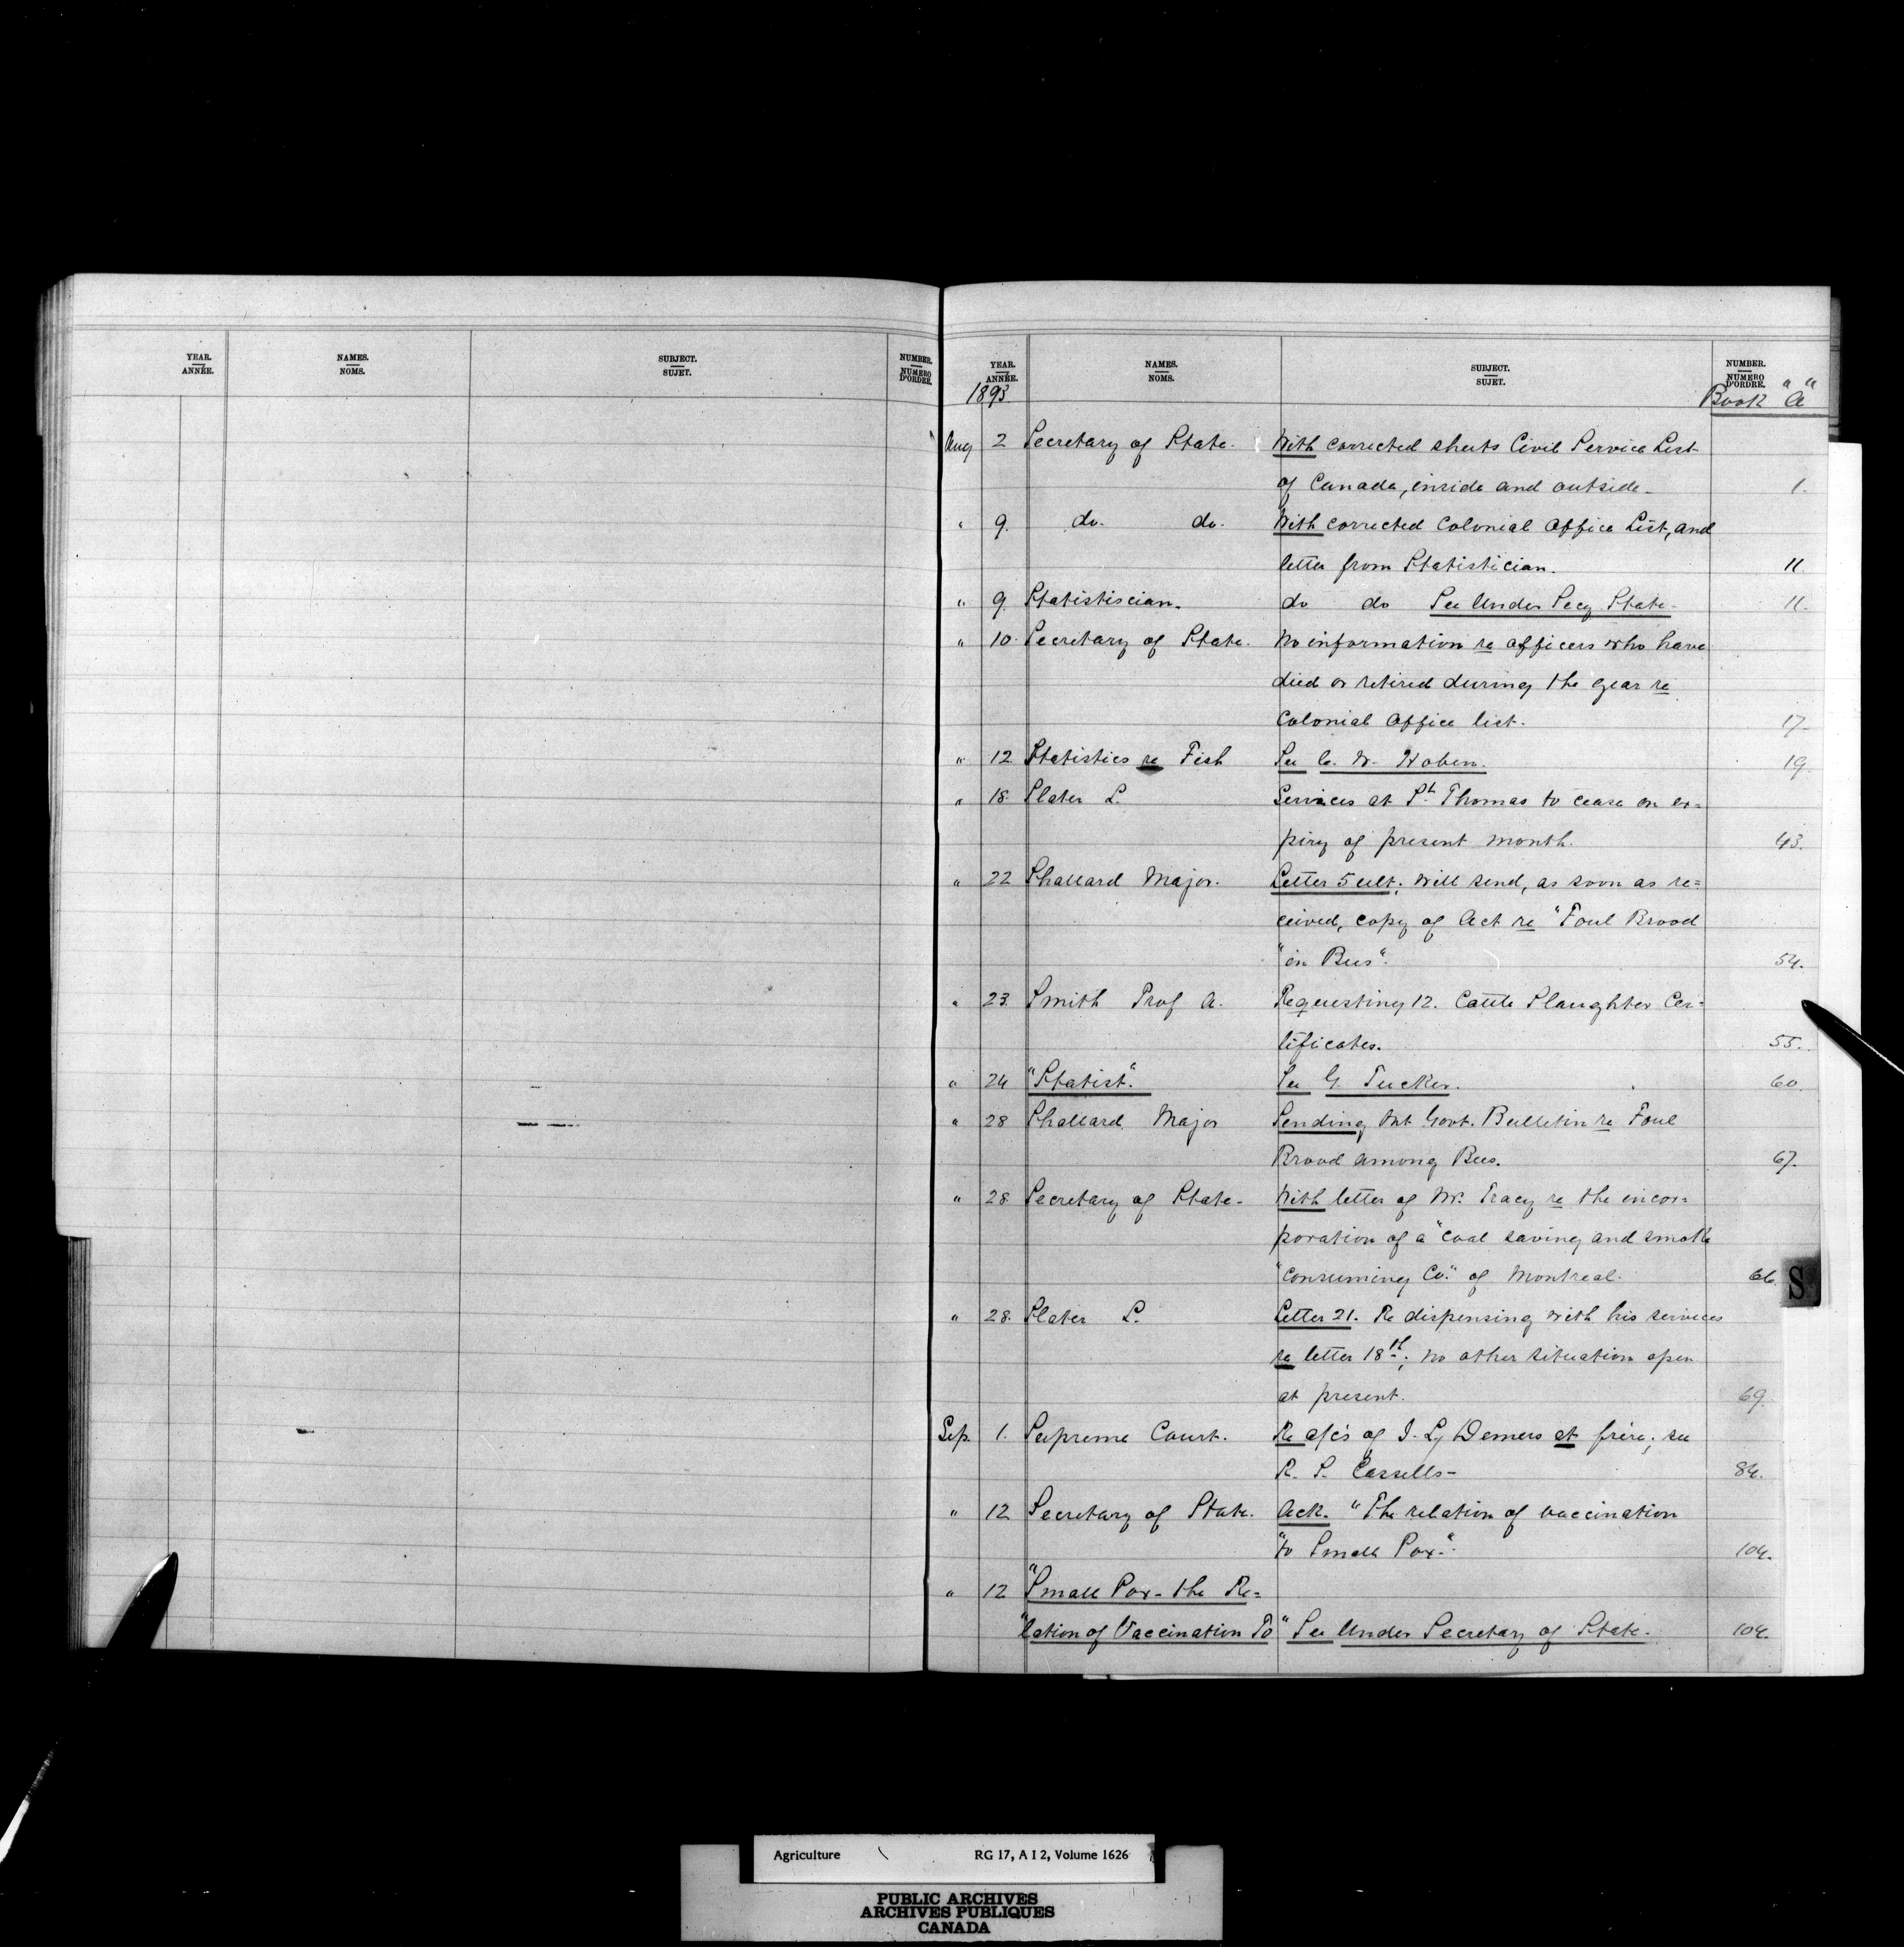 YEAR. ANNÉE. NAMES. NOMS. SUBJECT. SUJET. NUMBER. NUMÉRO D'ORDRE.
YEAR. ANNÉE. NAMES. NOMS. SUBJECT. SUJET. NUMBER. NUMÉRO D'ORDRE.
1893 Book "A"
Aug 2 Secretary of State. With corrected sheets Civil Service List
of Canada, inside and outside. 1.
" 9. do. do. With corrected Colonial Office List, and
letter from Statistician. 11
" 9 Statistiscian. do do See Under Secy State 11.
" 10. Secretary of State. No information re officers who have
died or retired during the year re
Colonial Office list. 17
" 12 Statistics re Fish See C. W. 19
" 18. Slater L. Services at St. Thomas to cease on ex=
piry of present month. 43.
" 22 Shallard Major. Letter 5 ult; Will send, as soon as re=
ceived, copy of Act re "Foul Brood
"in Bees". 54.
" 23. Smith Prof A. Requesting 12. Cattle Slaughter Cer=
tificates. 55.
" 24 "Statist". See G. Tucker. 60.
" 28 Shallard Major Sending Ont Govt. Bulletin re Foul
Brood among Bees. 67.
" 28 Secretary of State. With letter of Mr. Tracy re the incor=
poration of a "Coal saving and smoke
"Consuming Co." of Montreal. 66.
" 28. Slater L. Letter 21. Re dispensing with his services
re letter 18th; No other situation open
at present. 69.
Sep. 1. Supreme Court. Re a/cs of J. Ly Demers et frère; see
R. S. Cassells- 84.
" 12 Secretary of State. Ack. "The relation of vaccination
"to Small Pox". 104.
" 12 "Small Pox - the Re=
"lation of Vaccination To" See Under Secretary of State. 104.
S
Agriculture RG 17, A I 2, Volume 1626
PUBLIC ARCHIVES
ARCHIVES PUBLIQUES
CANADA